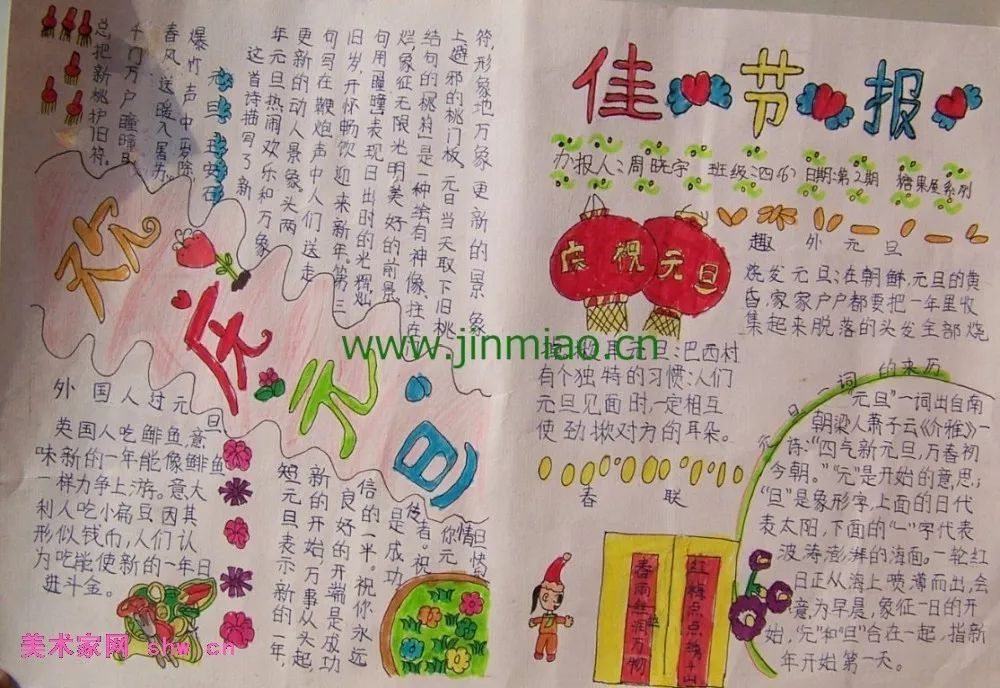 佳节报
办报人:周晓宇 班级:四(6) 日期:第2期 糖果屋系列
庆祝元旦
趣外元旦
烧发元旦:在朝鲜,元旦的黄
昏,家家户户都要把一年里收
集起来脱落的头发全部烧
旦:巴西村
有个独特的习惯:人们
元旦见面时,一定相互
使劲揪对方的耳朵。
春联
春雨丝润万物
红梅点点绣千山
元旦一词的来历
"元旦"一词出自南
朝梁人萧子云《介雅》一
诗:"四气新元旦,万春初
今朝。""元"是开始的意思;
"旦"是象形字,上面的日代
表太阳,下面的"一"字代表
波涛澎湃的海面。一轮红
日正从海上喷薄而出,会
意为早晨,象征一日的开
始。"元"和"旦"合在一起,指新
年开始第一天。
元旦 王安石
爆竹声中岁除
春风送暖入屠苏。
千门万户瞳瞳日
总把新桃护旧符。
这首诗描写了新
年元旦热闹欢乐和万象
更新的动人景象。头两
句写在鞭炮声中人们送走
旧岁,开怀畅饮迎来新年。第三
句用"瞳瞳"表现日出时的光辉灿
烂,象征无限光明美好的前景
结句的"桃符"是一种绘有神像、挂在
上避邪的桃门板。元旦当天取下旧桃
符,形象地万象更新的景象
祝庆元旦
外国人过元旦
英国人吃鲱鱼,意
味新的一年能像鲱鱼
一样力争上游。意大
利人吃小扁豆,因其
形似钱币,人们认
为吃能使新的一年日
进斗金。
短元旦表示新的一年,
新的开始万事从头起,
良好的开端是成功
信的一半。祝你永远
是成功
使者。祝
你元
旦
www.jinmiao.cn
美术家网 shw.cn